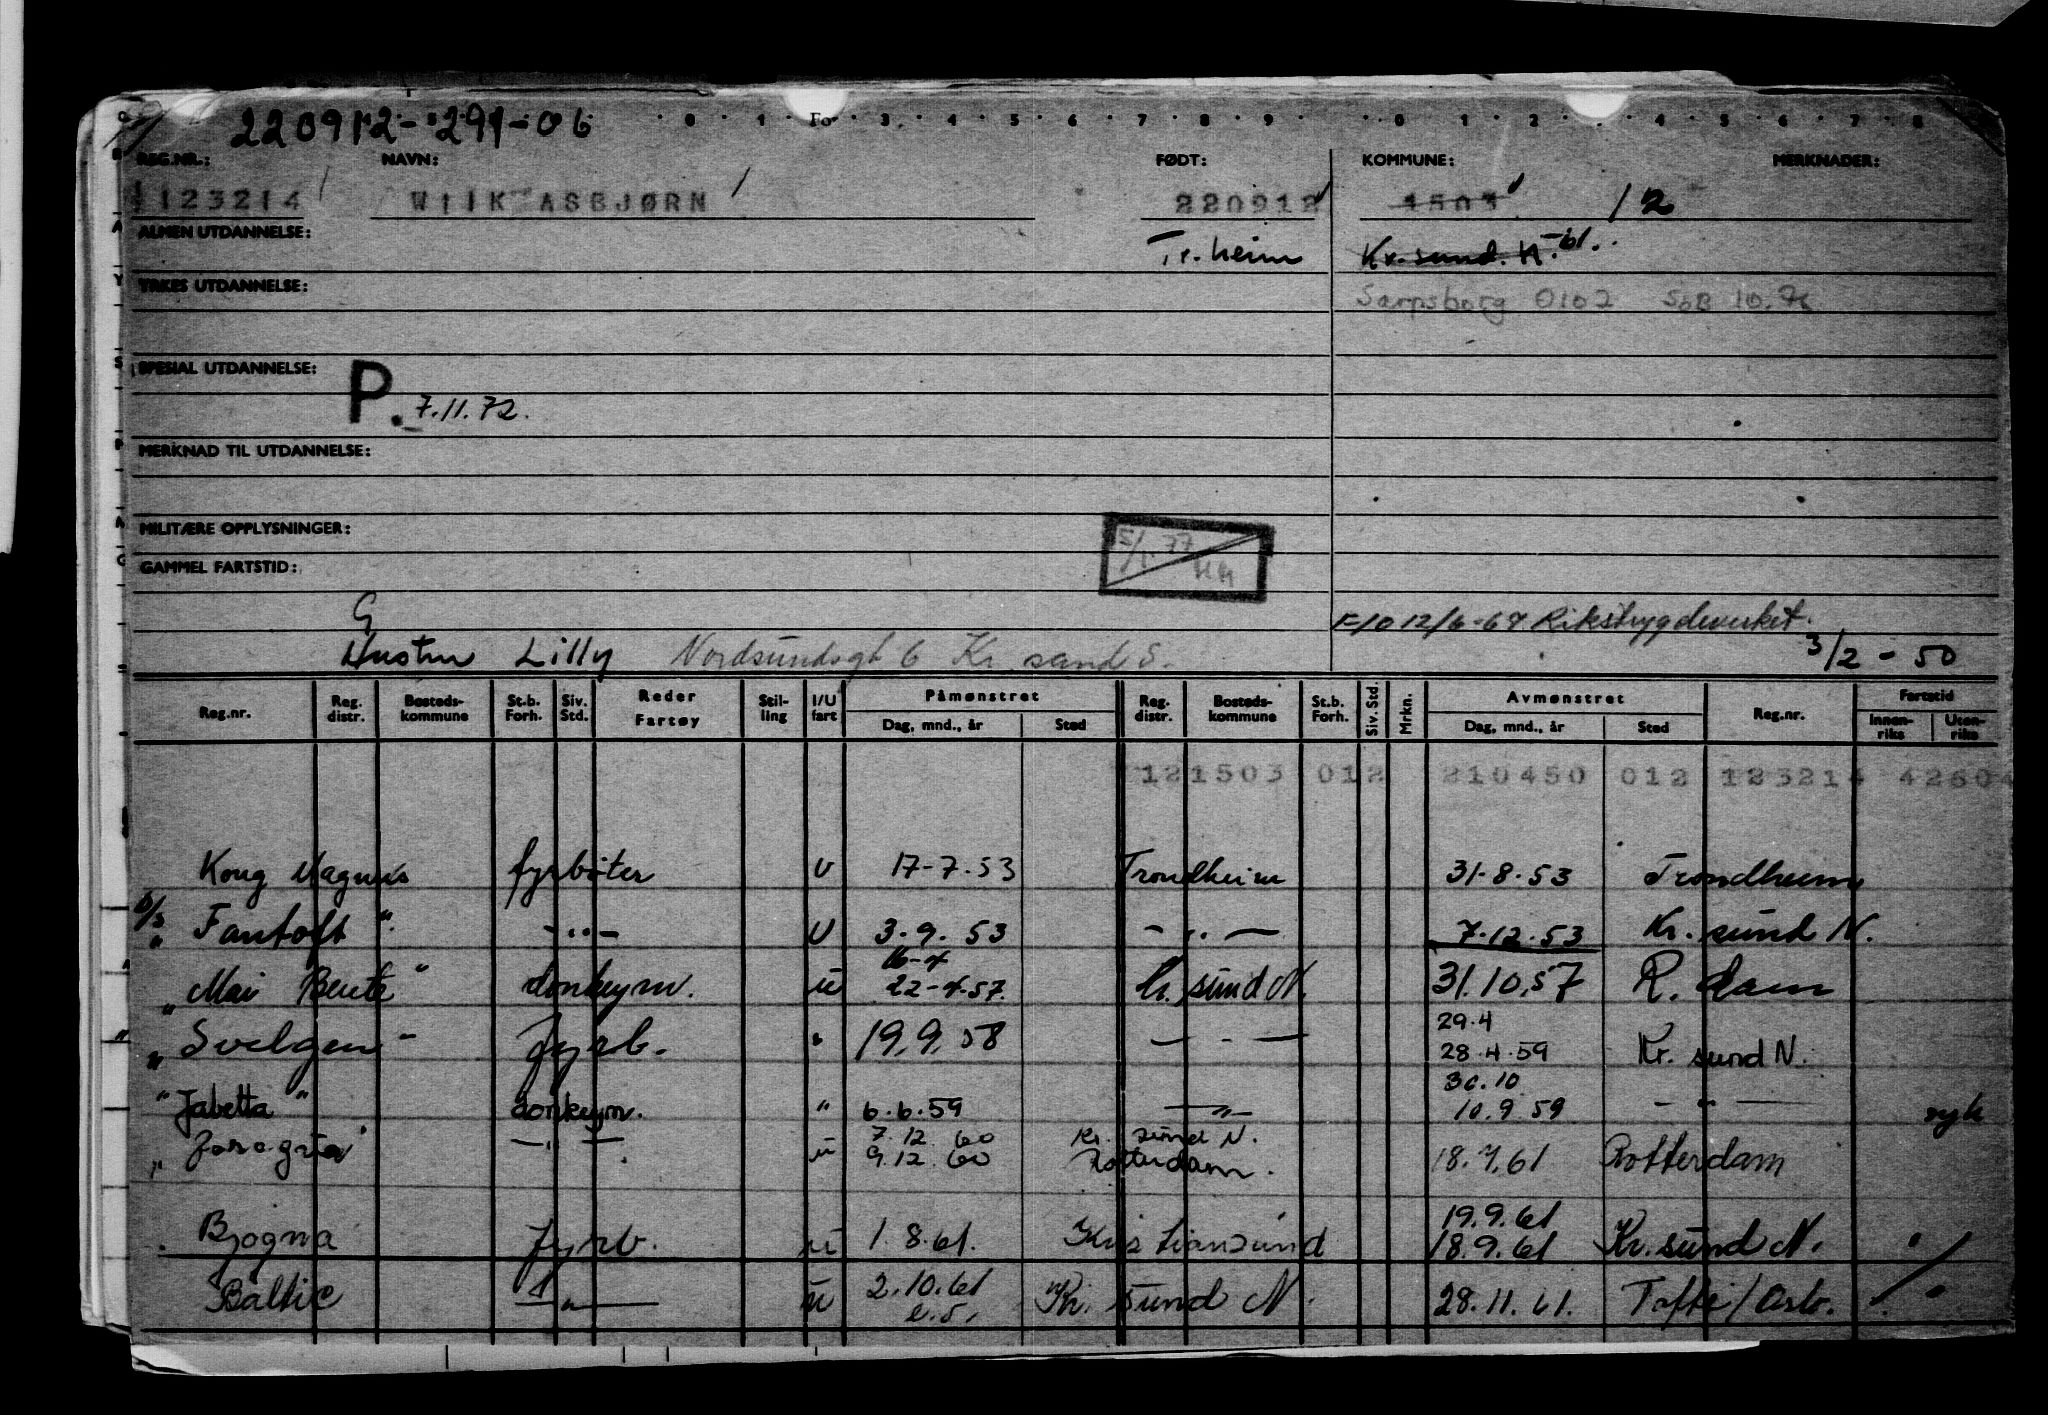 220912-291-06
REG.NR.: NAVN: FØDT: KOMMUNE: MERKNADER:
123214 WIIK ASBJØRN 220912 1503 /2
ALMEN UTDANNELSE: Tr.heim Kr.sund. N. -61.
YRKES UTDANNELSE: Sarpsborg 0102 SøB 10.76
SPESIAL UTDANNELSE:
P. 7.11.72.
MERKNAD TIL UTDANNELSE:
MILITÆRE OPPLYSNINGER:
5/1 77
GAMMEL FARTSTID:
G
F/O 12/6-67 Rikstrygdeverket.
Hustru Lilly Nordsundsgt 6 Kr. sand S. 3/2 - 50
Reg.nr. Reg. distr. Bosteds-kommune St.b. Forh. Siv. Std. Reder Fartøy Stil-ling I/U fart Påmønstret Dag, mnd., år Sted Reg. distr. Bosteds-kommune St.b. Forh. Siv. Std. Mrkn. Avmønstret Dag, mnd., år Sted Reg.nr. Fartstid Innen-riks Uten-riks
121503 012 210450 012 123214 42604
Kong Magnus fyrbøter U 17-7.53 Trondheim 31.8.53 Trondheim
D/S " Fantoft " - " - U 3.9.53 - " - 7.12.53 Kr. sund N.
16-4
" Mai Bente " donkeym. u 22-4-57. Kr. sund N. 31.10.57 R.dam
29.4
" Svelgen " fyrb. " 19.9.58 - " - 28.4.59 Kr. sund N.
30.10
" Jabetta " donkeym. " 6.6.59 - " - 10.9.59 - " - syk
7.12.60 Kr. sund N.
" - " - u 9.12.60 Rotterdam. 18.7.61 Rotterdam
19.9.61
Bjogna fyrb. u 1.8.61. Kristiansund 18.9.61 Kr.sund N.
Baltic - " - u 2.10.61 Kr. sund N. 28.11.61. Tofte/Oslo.